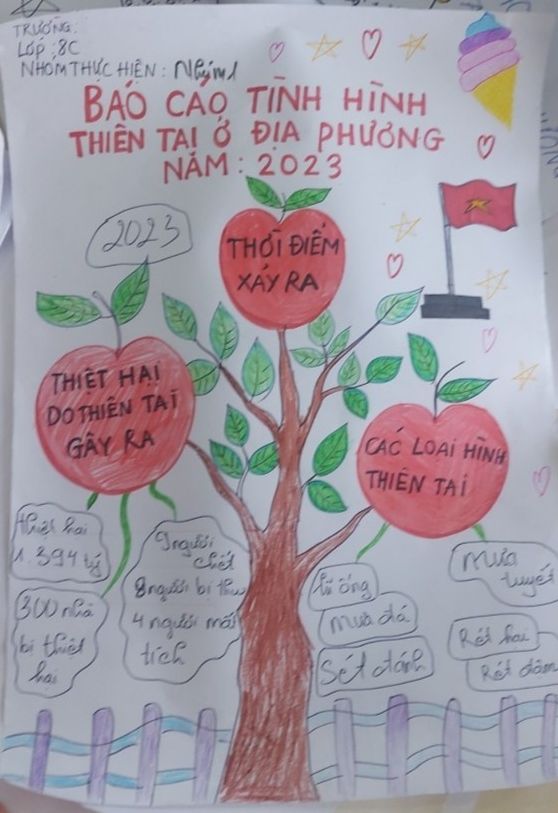 TRƯỜNG:
LỚP : 8C
NHÓM THỰC HIỆN : Nhóm 1
BÁO CÁO TÌNH HÌNH
THIÊN TAI Ở ĐỊA PHƯƠNG
NĂM : 2023
2023
THỜI ĐIỂM
XẢY RA
THIỆT HẠI
DO THIÊN TAI
GÂY RA
CÁC LOẠI HÌNH
THIÊN TAI
thiệt hại
1.394 tỷ
300 nhà
bị thiệt
hại
9 người
chết
8 người bị thư
4 người mất
tích
lũ ống
mưa đá
Sét đánh
mưa
tuyết
Rét hại
Rét đậm